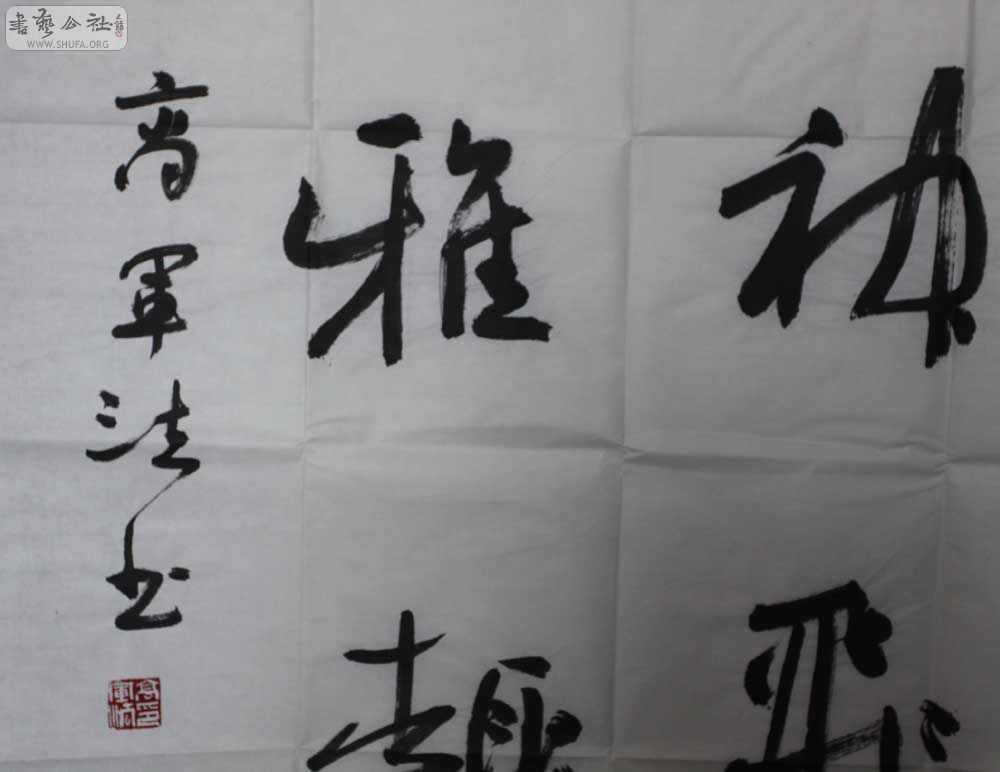 書藝公社
WWW.SHUFA.ORG
神飛
雅趣
高軍法书
高印軍法